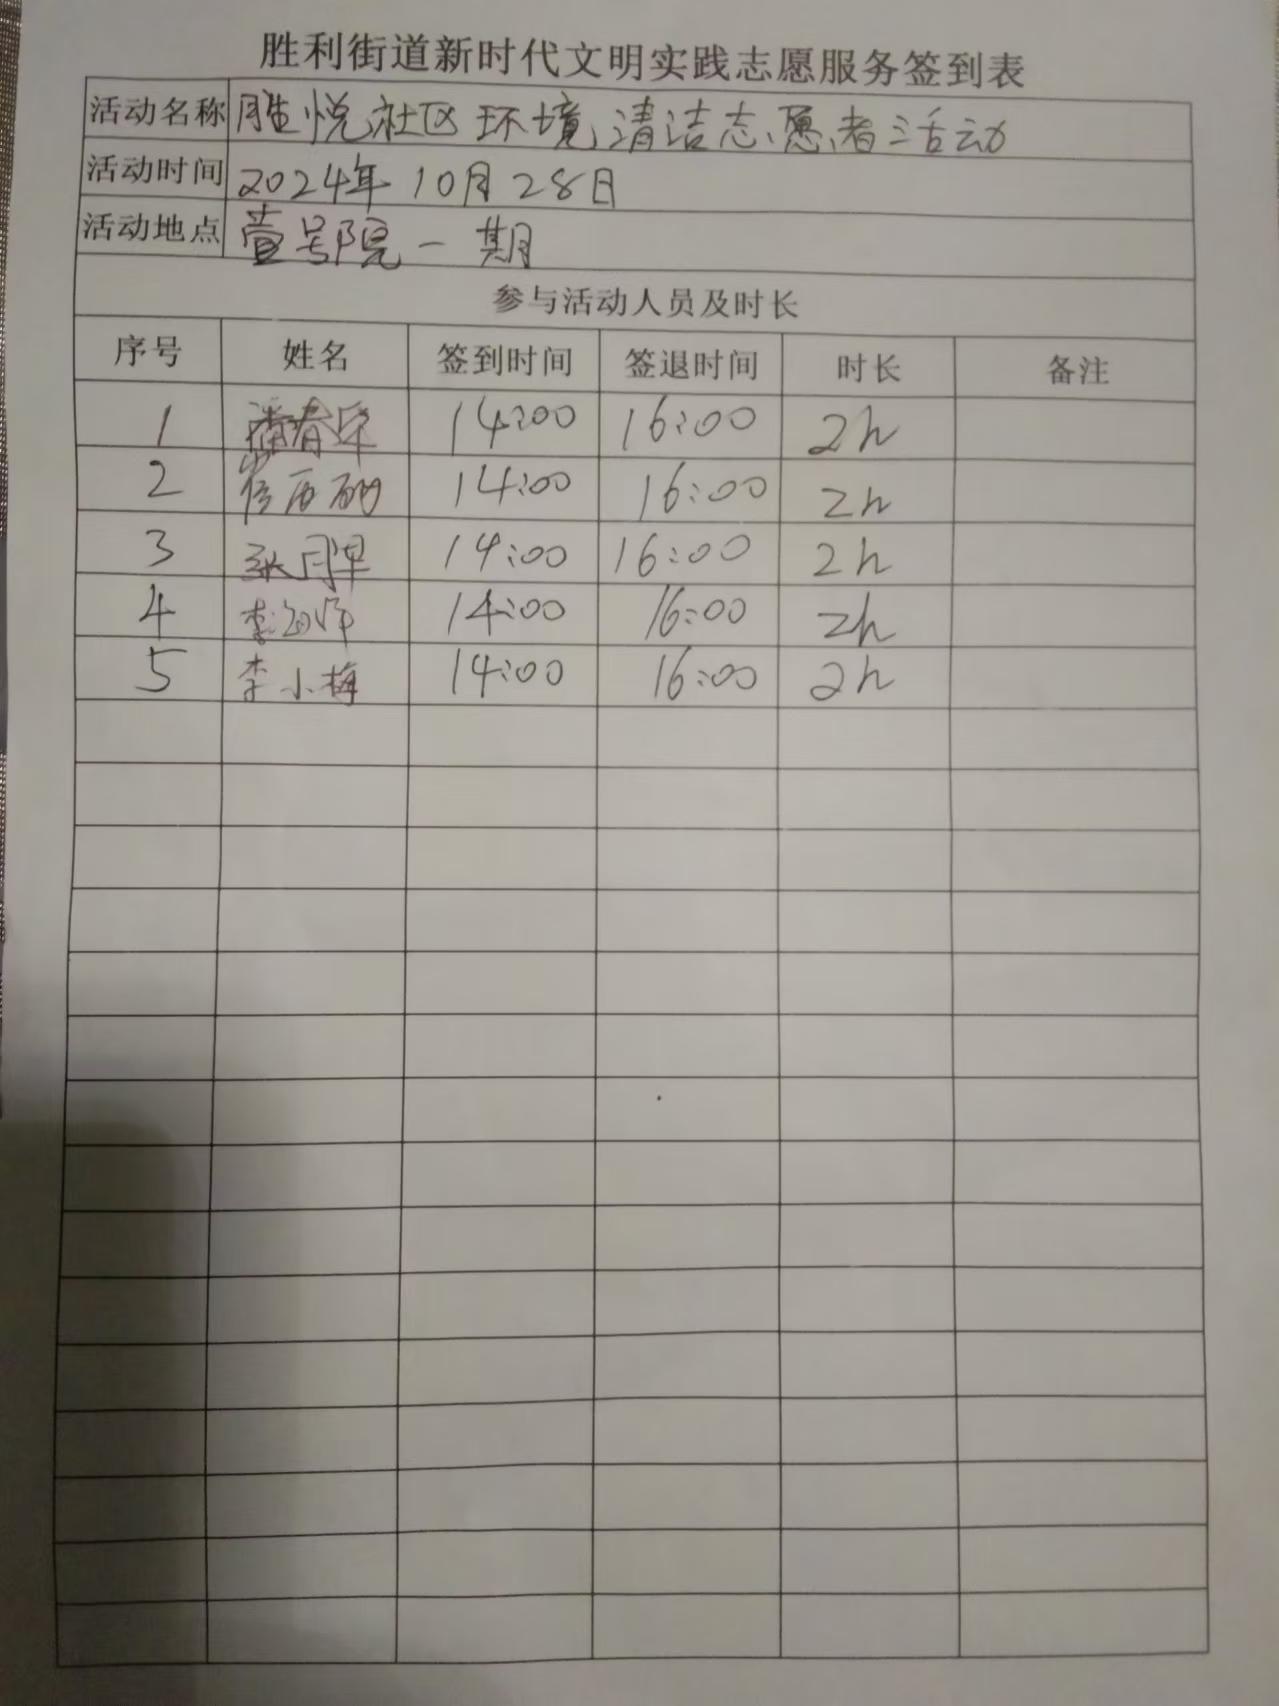 胜利街道新时代文明实践志愿服务签到表
活动名称 胜悦社区环境清洁志愿者活动
活动时间 2024年10月28日
活动地点 壹号院一期
参与活动人员及时长
序号 姓名 签到时间 签退时间 时长 备注
1 潘春 14:00 16:00 2h
2 14:00 16:00 2h
3 张月 14:00 16:00 2h
4 李 14:00 16:00 2h
5 李小梅 14:00 16:00 2h